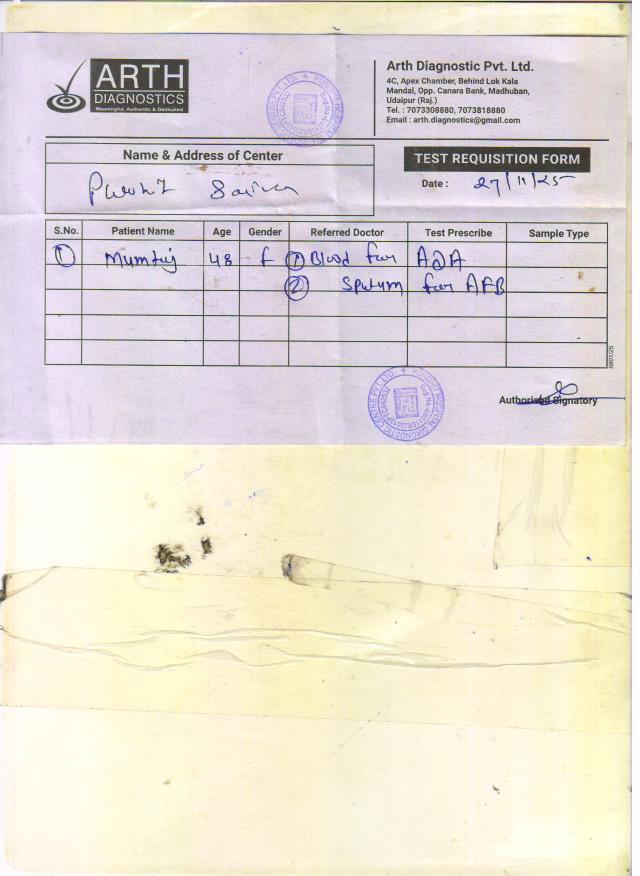 ARTH
DIAGNOSTICS
Meaningful, Authentic & Dedicated
Arth Diagnostic Pvt. Ltd.
4C, Apex Chamber, Behind Lok Kala
Mandal, Opp. Canara Bank, Madhuban,
Udaipur (Raj.)
Tel. : 7073308880, 7073818880
Email : arth.diagnostics@gmail.com
Name & Address of Center
TEST REQUISITION FORM
Date : 27/11/25
S.No. Patient Name Age Gender Referred Doctor Test Prescribe Sample Type
1 Mumtaj 48 f 1 Blood for ADA
2 Sputum for AFB
Authorised Signatory